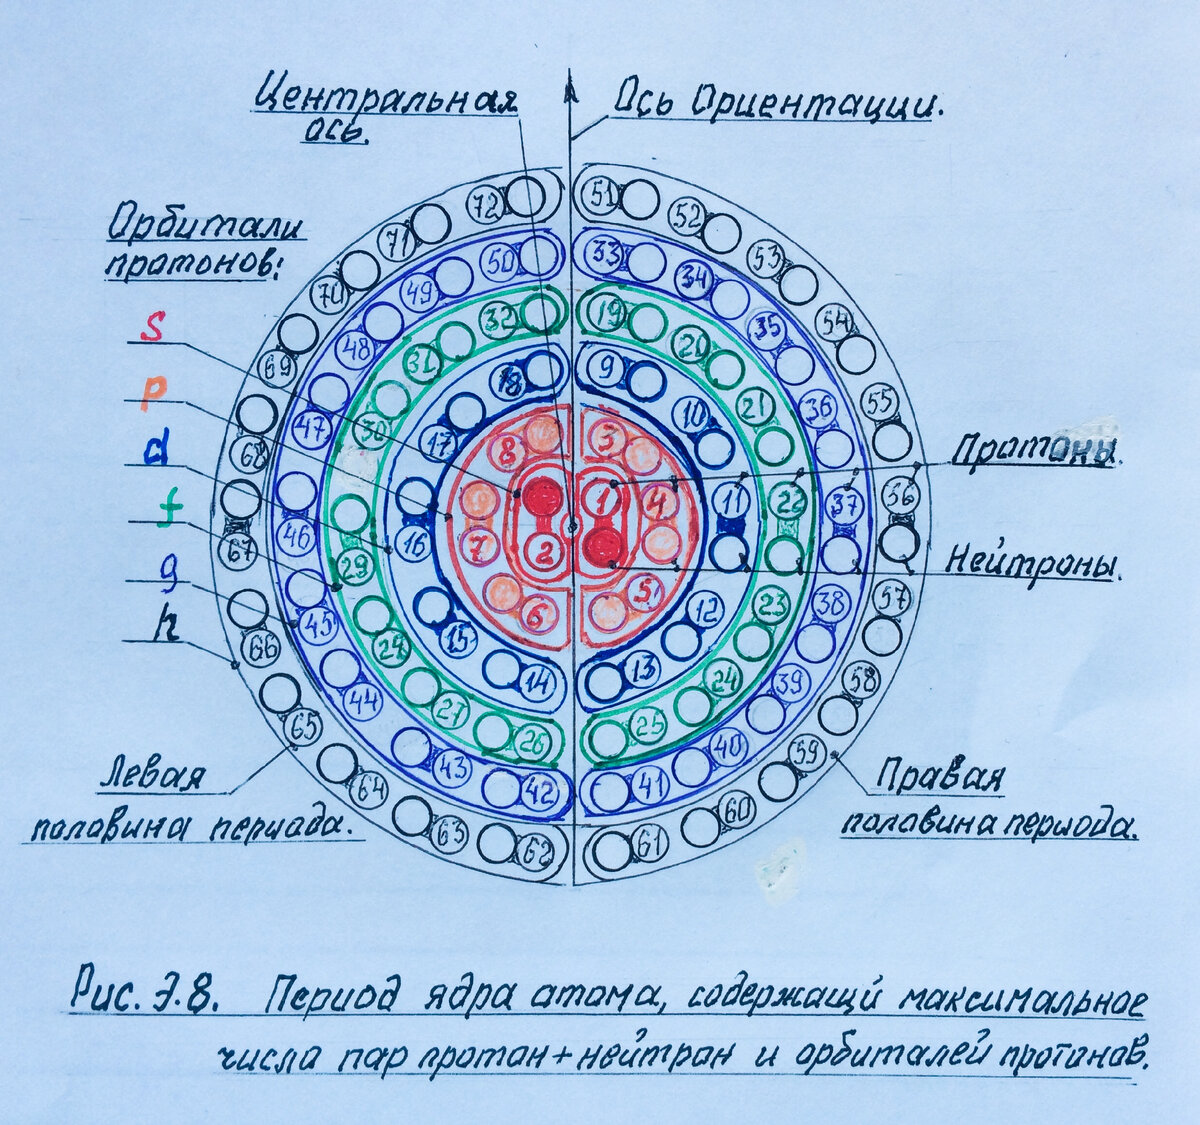 Центральная
ось.
Ось Ориентации.
Орбитали
протонов:
s
p
d
f
g
h
Протоны.
Нейтроны.
Левая
половина периода.
Правая
половина периода.
1
2
3
4
5
6
7
8
9
10
11
12
13
14
15
16
17
18
19
20
21
22
23
24
25
26
27
28
29
30
31
32
33
34
35
36
37
38
39
40
41
42
43
44
45
46
47
48
49
50
51
52
53
54
55
56
57
58
59
60
61
62
63
64
65
66
67
68
69
70
71
72
Рис. Э.8. Период ядра атома, содержащй максимальное
число пар протон+нейтрон и орбиталей протонов.